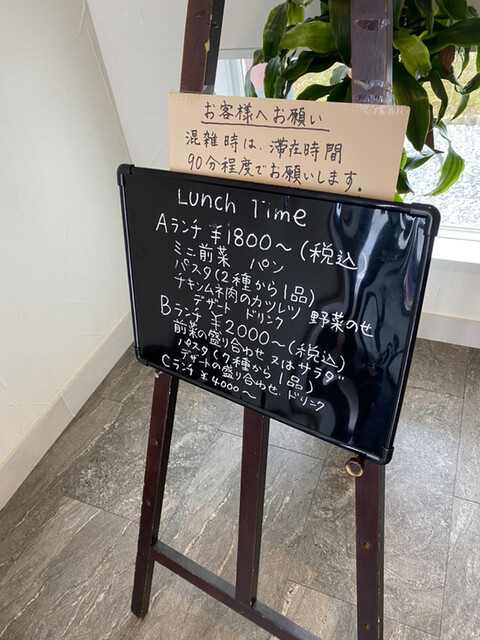 お客様へお願い
混雑時は、滞在時間
90分程度でお願いします。
Lunch Time
Aランチ ¥1800〜(税込)
ミニ前菜 パン
パスタ(2種から1品)
チキンムネ肉のカツレツ 野菜のせ
デザート ドリンク
Bランチ ¥2000〜(税込)
前菜の盛り合わせ 又はサラダ
パスタ(7種から1品)
デザートの盛り合わせ ドリンク
Cランチ ¥4000〜